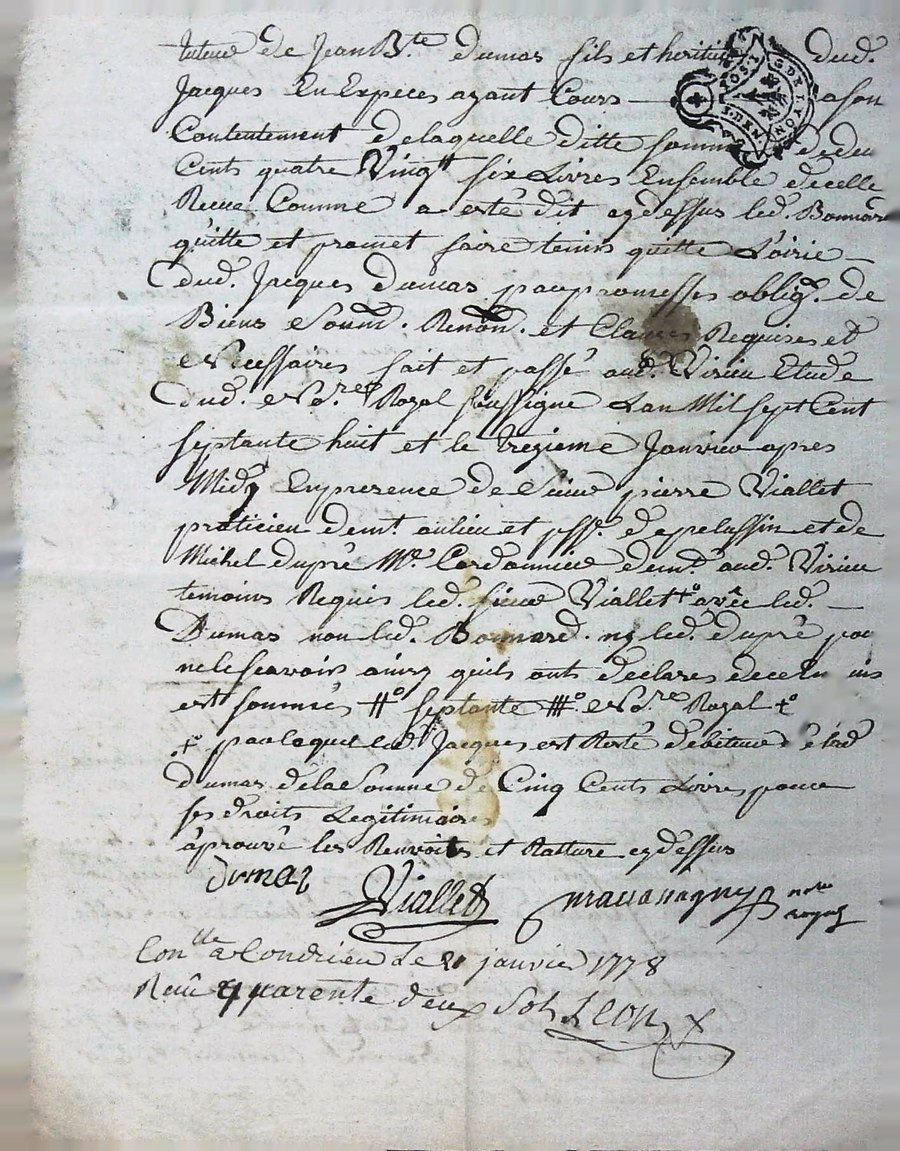 tuteur de Jean Bte. dumas fils et heritier dud.
Jacques En Especes ayant Cours — a son
Contentement de laquelle ditte somme de deux
Cents quatre Vingt six Livres Ensemble de celle
Recue Comme a esté dit cy dessus led. Bonnard
quitte et promet faire tenir quitte L'oirie —
dud. Jacques dumas par promesses oblig. de
Biens Soum. Renon. et Clauses Requises et
Necessaires fait et passé aud. Virieu Etude
dud. No.re Royal soussigne Lan Mil sept Cent
septante huit et le tregieme Janvier apres
Midy En presence de Sieur pierre Viallet
praticien demt. au lieu et psse. de pelussin et de
Michel dupré Me. Cordonnier demt. aud. Virieu
temoins Requis led. sieur Viallet avec led. —
Dumas non led. Bonnard ny led. dupré pour
ne le scavoir ainsy quils ont declares de ce
est sommés #° septante #° No.re Royal +°
+° par laquelle led. Jacques est Resté debiteur
dumas de la Somme de Cinq Cents Livres pour
ses droits Legitimaires
aprouvé les Renvoits et Ratture cy dessus
dumas
Viallet
nore
royal
Conllé a Condrieu le 21 janvier 1778
Recu quarente deux Sols Leon